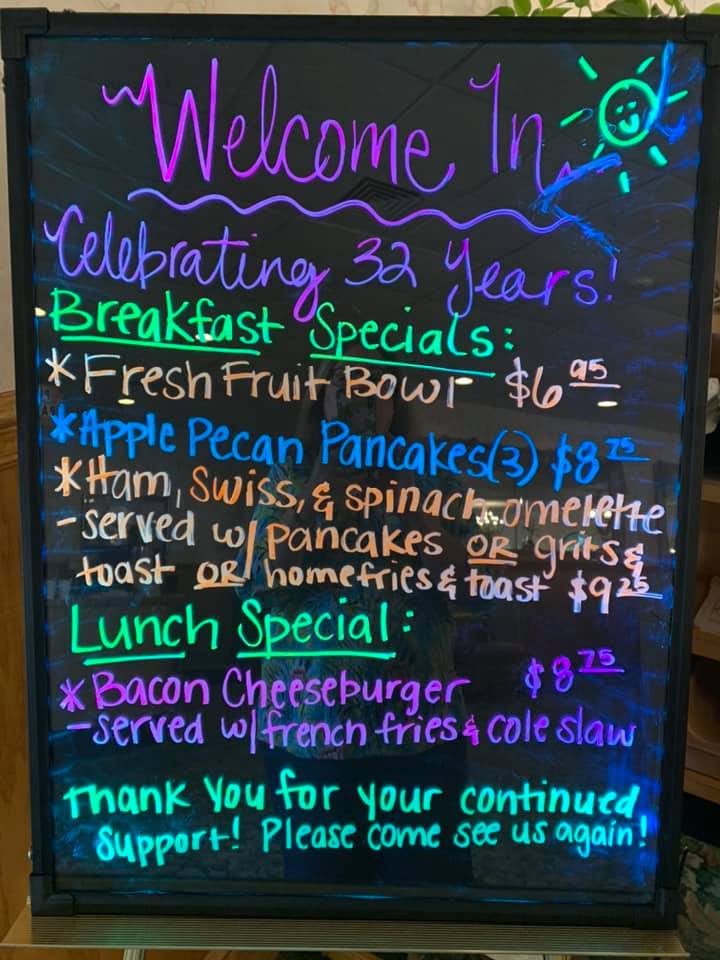 Welcome In
Celebrating 32 Years!
Breakfast Specials:
*Fresh Fruit Bowl $6.95
*Apple Pecan Pancakes(3) $8.75
*Ham, Swiss, & spinach omelette
-served w/ pancakes OR grits &
toast OR homefries & toast $9.25
Lunch Special:
*Bacon Cheeseburger $8.75
-served w/ french fries & cole slaw
Thank you for your continued
support! Please come see us again!